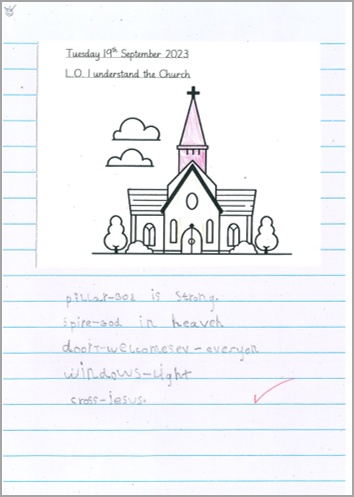 Tuesday 19th September 2023
L.O. I understand the Church
pillar-God is strong.
spire-God in heaven
door-welcomesev-everyon
windows-light
cross-jesus.